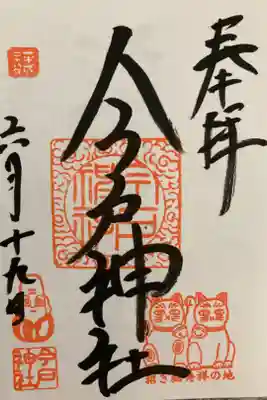 奉拝
今戸神社
六月十九日
今戸神社
招き猫発祥の地